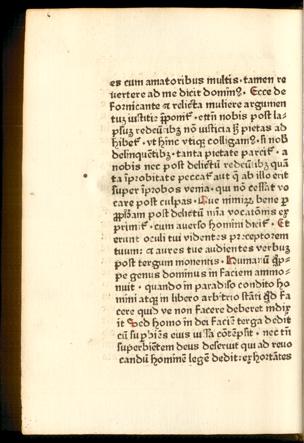 es cum amatoribus multis. tamen re
uertere ad me dicit domin9. Ecce de
fornicante et relicta muliere argumen
tuȝ iusticie ꝓponit᷒. et tn̄ nobis post la
psuȝ redeūtibȝ nō iusticia sȝ pietas ad
hibet᷒. vt hinc vtiqȝ colligam9. si nob᷒
delinquētibȝ. tanta pietate parcit᷒. a
nobis nec post delictū redeūtibȝ quā
ta īprobitate peccat᷒ aut q̄ ab illo erit
super īprobos venia. qui nō cessat vo
care post culpas. Que nimiȝ bene ꝑ
ꝓphetam post delictū dīna vocatōnis ex
primit᷒. cum auerso homini dicit᷒. Et
erunt oculi tui videntes preceptorem
tuum: et aures tue audientes verbuȝ
post tergum monentis. Humanū qip
pe genus dominus in faciem ammo
nuit. quando in paradiso condito ho
mini atqȝ in libero arbitrio stāti qd fa
cere quid ve non facere deberet indix
it Sed homo in dei faciē terga dedit
cū supbiēs eius iussa cōtēpsit. nec tn̄
superbiētem deus deseruit qui ad reuo
candū hominē legē dedit: exhortātes